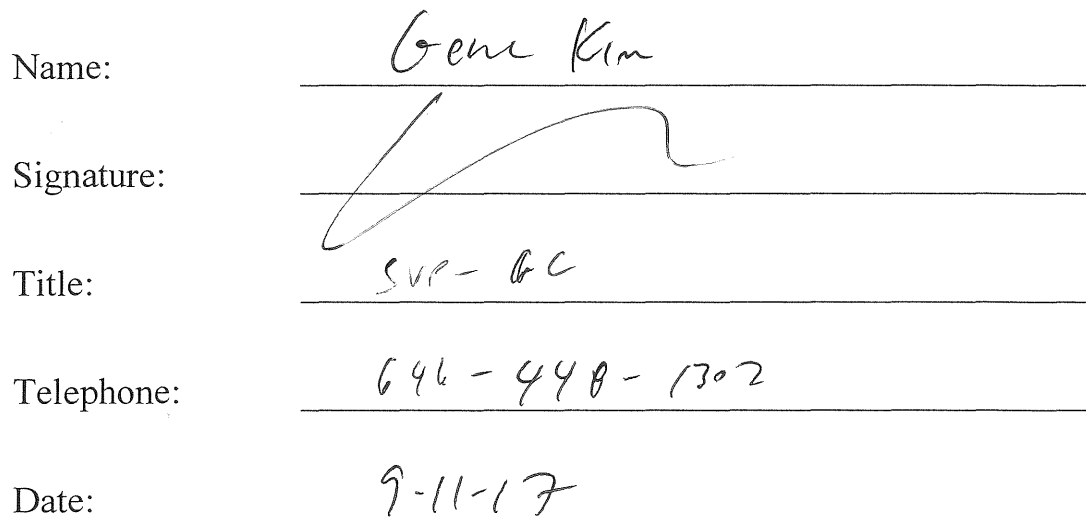 Name: Gene Kim
Signature:
Title: SVP - GC
Telephone: 646-448-1302
Date: 9-11-17